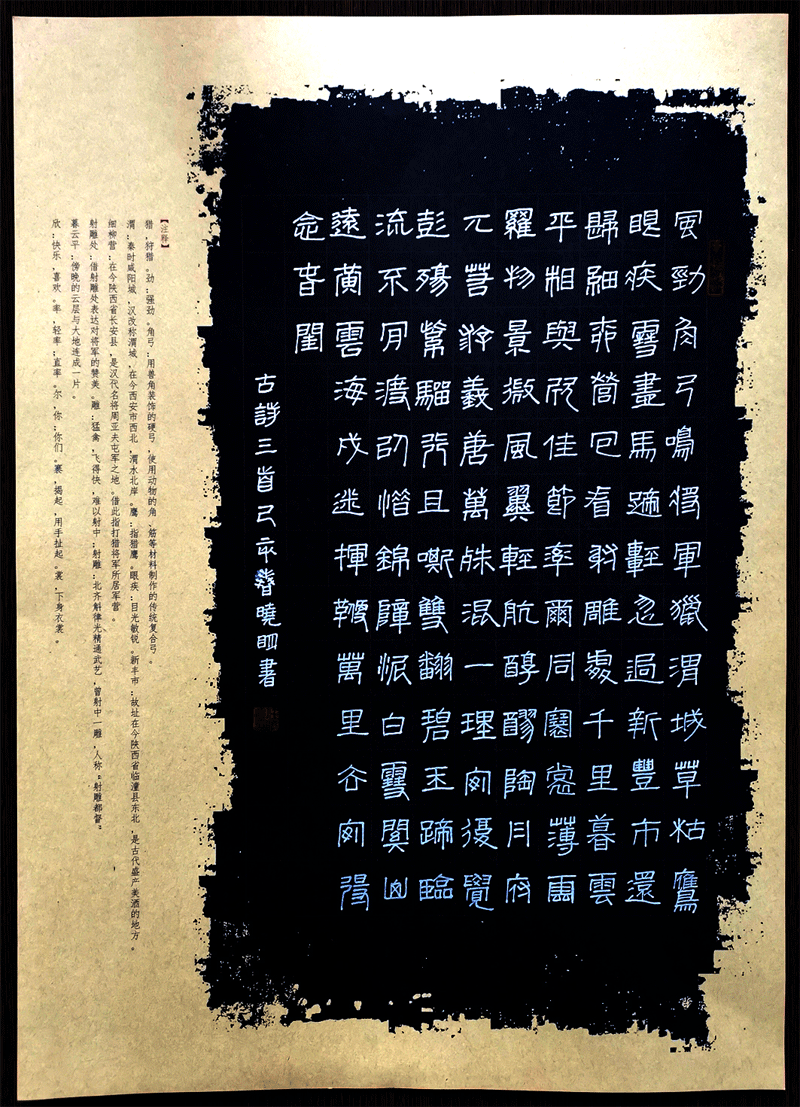 風勁角弓鳴將軍獵渭城草枯鷹
眼疾雪盡馬蹄輕忽過新豐市還
歸細柳營回看射雕處千里暮雲
平相與欣佳節率爾同褰裳薄雲
羅物景微風翼輕航醇醪陶丹府
兀若游羲唐萬殊混一理安復覺
彭殤紫騮行且嘶雙翻碧玉蹄臨
流不肯渡似惜錦障泥白雪關山
遠黃雲海戍迷揮鞭萬里去安得
念春閨
古詩三首己亥春曉明書
【注释】
猎，狩猎。劲：强劲。角弓：用兽角装饰的硬弓，使用动物的角、筋等材料制作的传统复合弓。
渭：秦时咸阳城，汉改称渭城，在今西安市西北，渭水北岸。鹰：指猎鹰。眼疾：目光敏锐。新丰市：故址在今陕西省临潼县东北，是古代盛产美酒的地方。
细柳营：在今陕西省长安县，是汉代名将周亚夫屯军之地。借此指打猎将军所居军营。
射雕处：借射雕处表达对将军的赞美。雕：猛禽，飞得快，难以射中；射雕：北齐斛律光精通武艺，曾射中一雕，人称“射雕都督”。
暮云平：傍晚的云层与大地连成一片。
欣：快乐，喜欢。率，轻率；直率。尔，你；你们。褰，揭起，用手扯起。裳，下身衣裳。